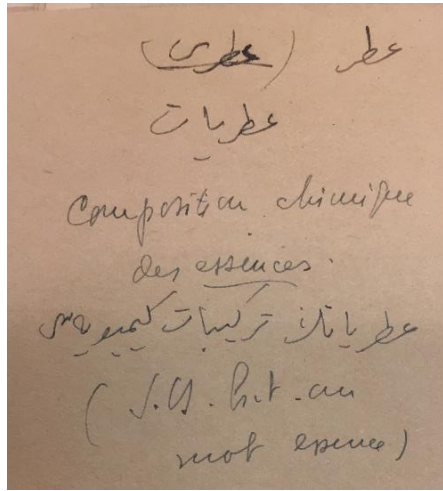 عطر (عطری)
عطريات
Composition chimique
des essences.
عطرياتك تركيبات كيميويه سی
mot essence)